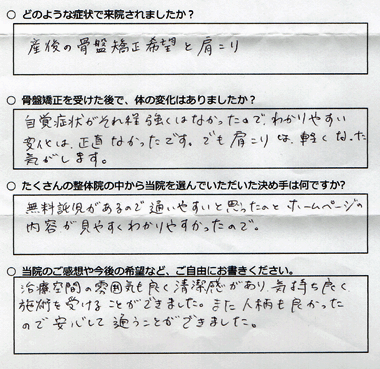 ○ どのような症状で来院されましたか？
産後の骨盤矯正希望と肩こり
○ 骨盤矯正を受けた後で、体の変化はありましたか？
自覚症状がそれ程強くはなかったので、わかりやすい
変化は、正直なかったです。でも肩こりは、軽くなった
気がします。
○ たくさんの整体院の中から当院を選んでいただいた決め手は何ですか？
無料託児があるので通いやすいと思ったのとホームページの
内容が見やすくわかりやすかったので。
○ 当院のご感想や今後の希望など、ご自由にお書きください。
治療空間の雰囲気も良く清潔感があり、気持ち良く
施術を受けることができました。また人柄も良かった
ので安心して通うことができました。